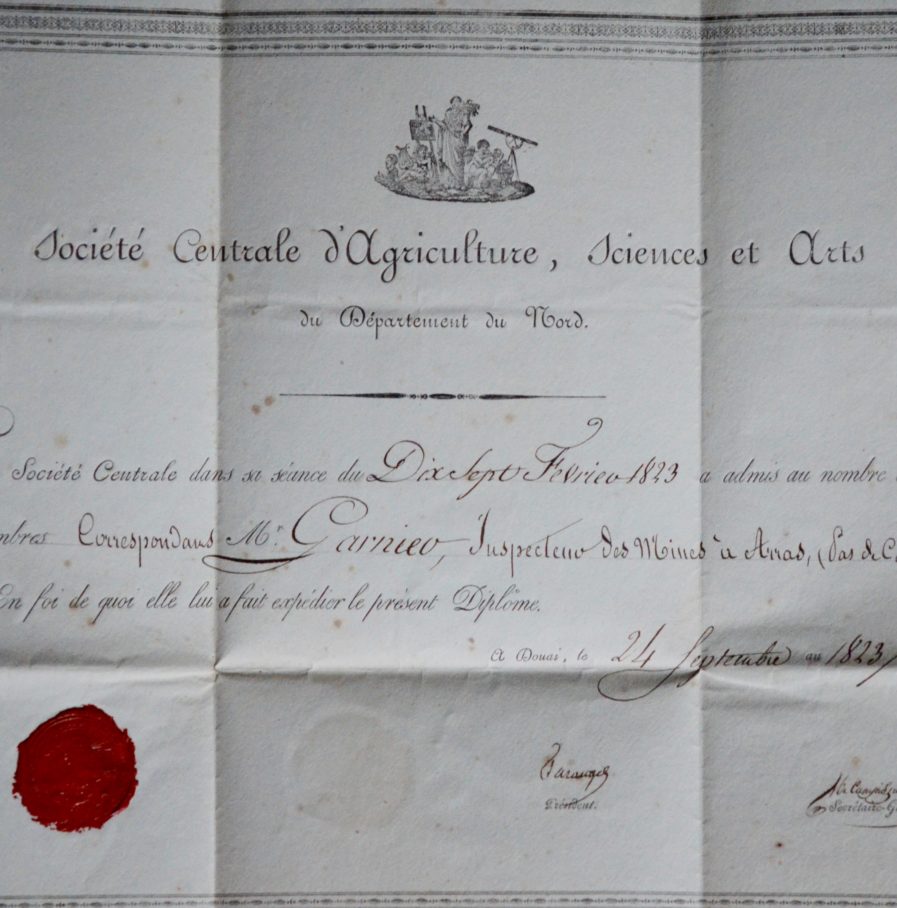 Société Centrale d'Agriculture, Sciences et Arts
du Département du Nord.
Société Centrale dans sa séance du Dix Sept Février 1823 a admis au nombre
mbres Correspondans Mr. Garnier, Inspecteur des Mines à Arras, (Pas de C
En foi de quoi elle lui a fait expédier le présent Diplôme.
A Douai, le 24 Septembre au 1823
Président.
Secrétaire G